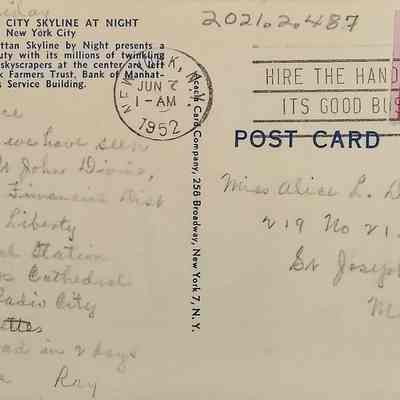 iday
CITY SKYLINE AT NIGHT
New York City
ttan Skyline by Night presents a
uty with its millions of twinkling
skyscrapers at the center are left
k Farmers Trust, Bank of Manhat-
s Service Building.
2021.2.487
NEW YORK, N.Y.
JUN
1-AM
1952
HIRE THE HAND
ITS GOOD BUS
POST CARD
Acacia Card Company, 258 Broadway, New York 7, N. Y.
ce
we have seen
St Johns Divine,
Financial Dist
Liberty
Station
Cathedral
Radio City
ettes
ad in 2 days
Ray
Miss Alice L. D
219 No 21
St Joseph
M